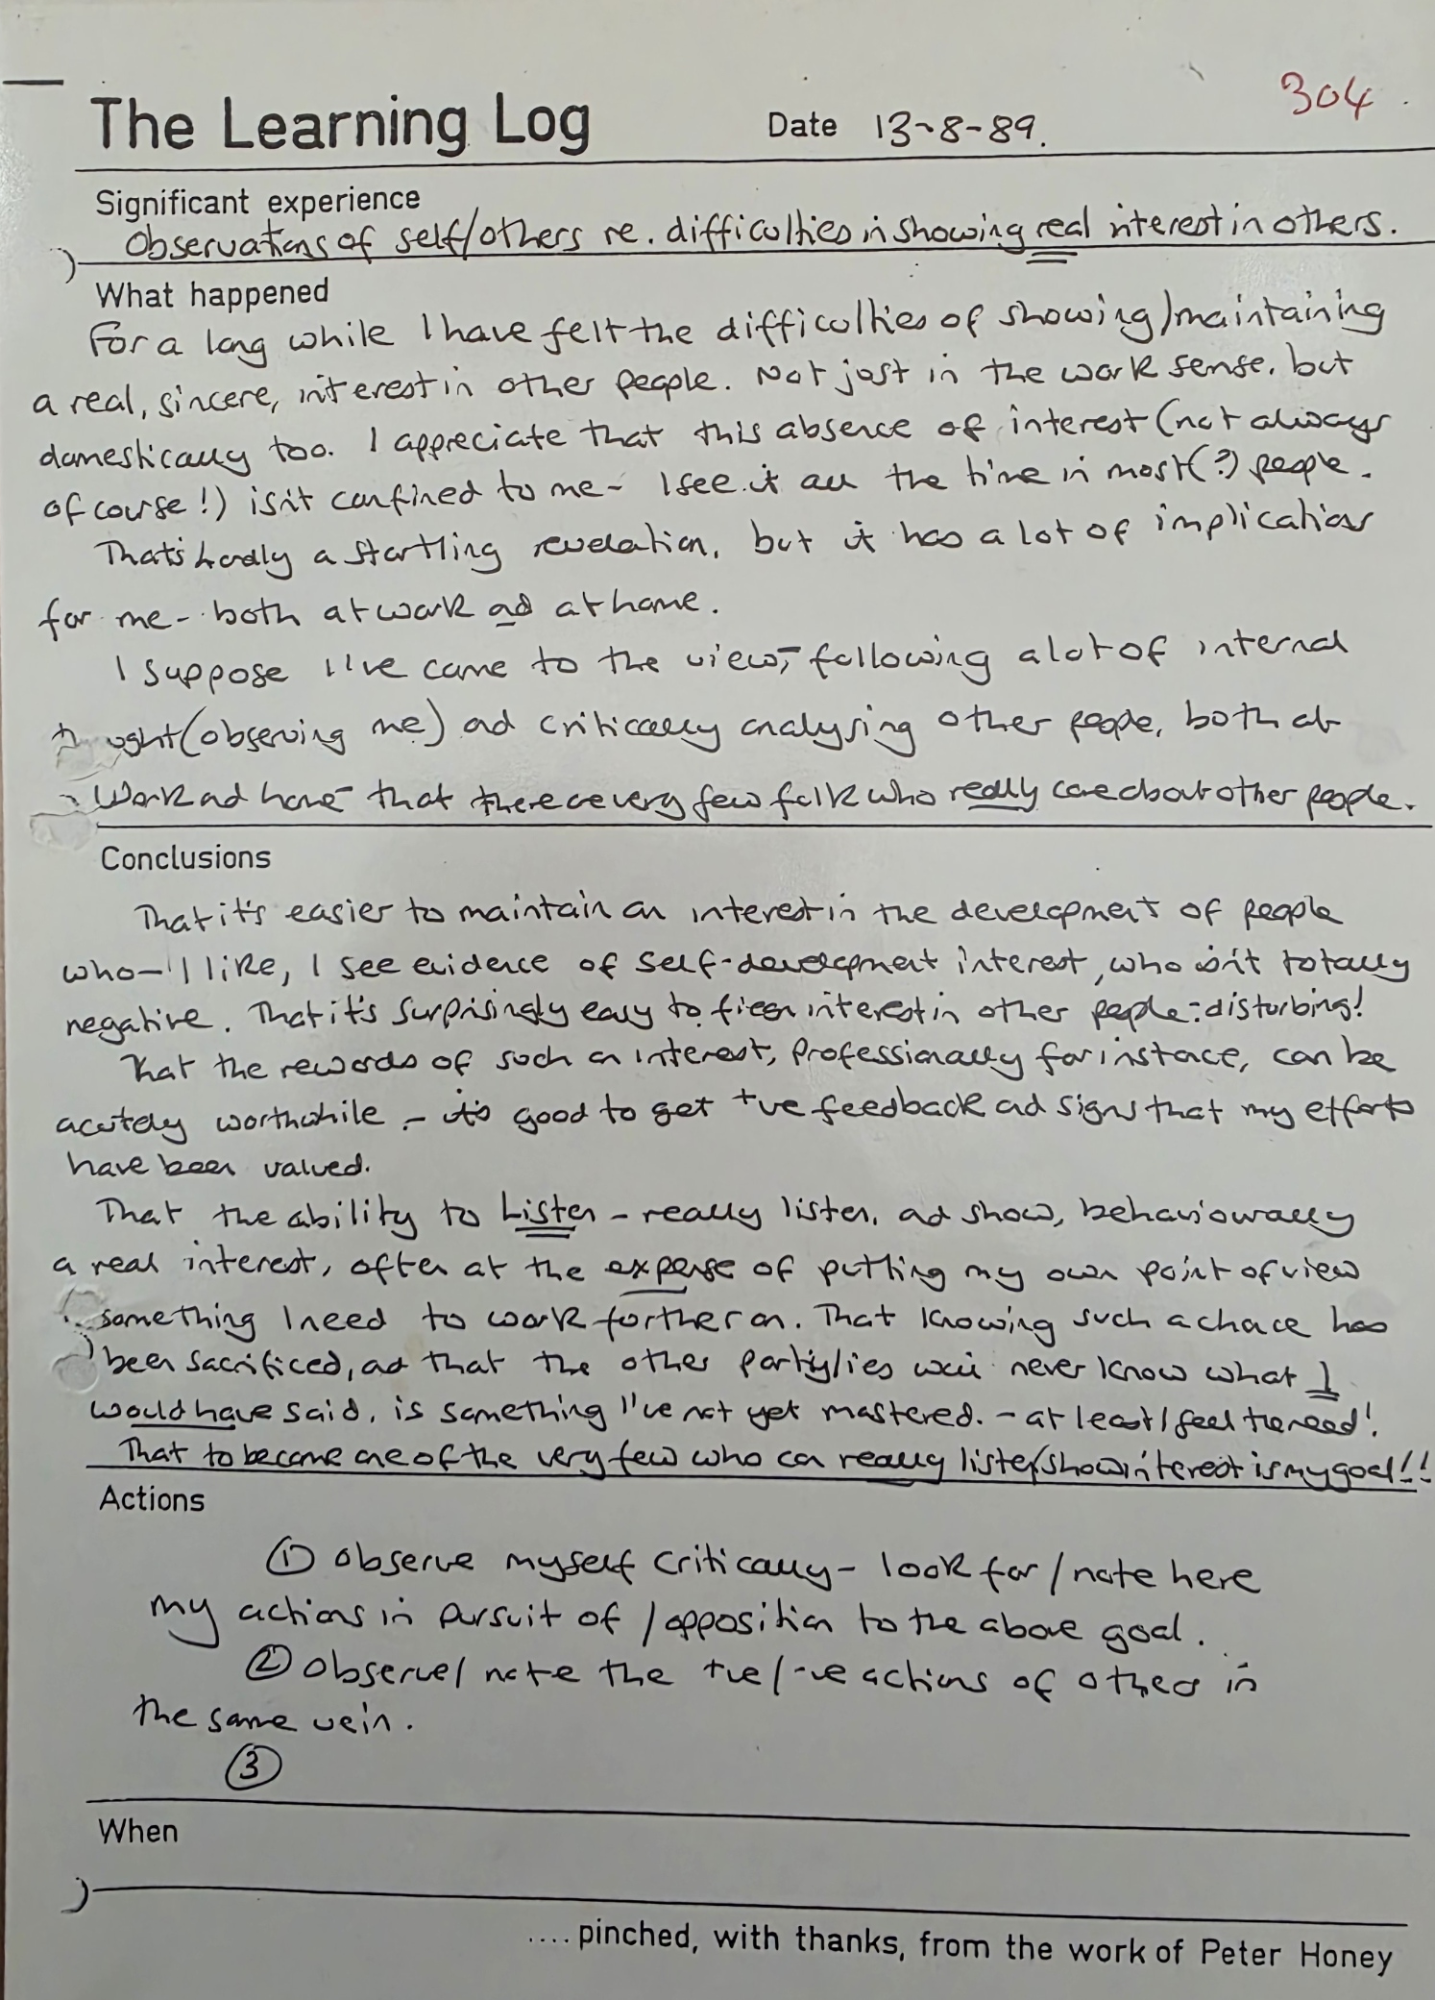 304
The Learning Log
Date 13-8-89.
Significant experience
Observations of self/others re. difficulties in showing real interest in others.
What happened
For a long while I have felt the difficulties of showing/maintaining
a real, sincere, interest in other people. Not just in the work sense, but
domestically too. I appreciate that this absence of interest (not always
of course!) isn't confined to me - I see it all the time in most(?) people.
That's hardly a startling revelation, but it has a lot of implications
for me - both at work and at home.
I suppose I've come to the view, following a lot of internal
thought (observing me) and critically analysing other people, both at
work and home - that there are very few folk who really care about other people.
Conclusions
That it's easier to maintain an interest in the development of people
who - I like, I see evidence of self-development interest, who isn't totally
negative. That it's surprisingly easy to interest in other people: disturbing!
That the rewards of such an interest, professionally for instance, can be
acutely worthwhile - it's good to get +ve feedback and signs that my efforts
have been valued.
That the ability to Listen - really listen, and show, behaviourally
a real interest, often at the expense of putting my own point of view
something I need to work further on. That knowing such a chance has
been sacrificed, and that the other party/ies will never know what I
would have said, is something I've not yet mastered. - at least I feel the need!
That to become one of the very few who can really listen/show interest is my goal!!
Actions
① Observe myself critically - look for/note here
my actions in pursuit of/opposition to the above goal.
② Observe/note the +ve/-ve actions of others in
the same vein.
③
When
.... pinched, with thanks, from the work of Peter Honey